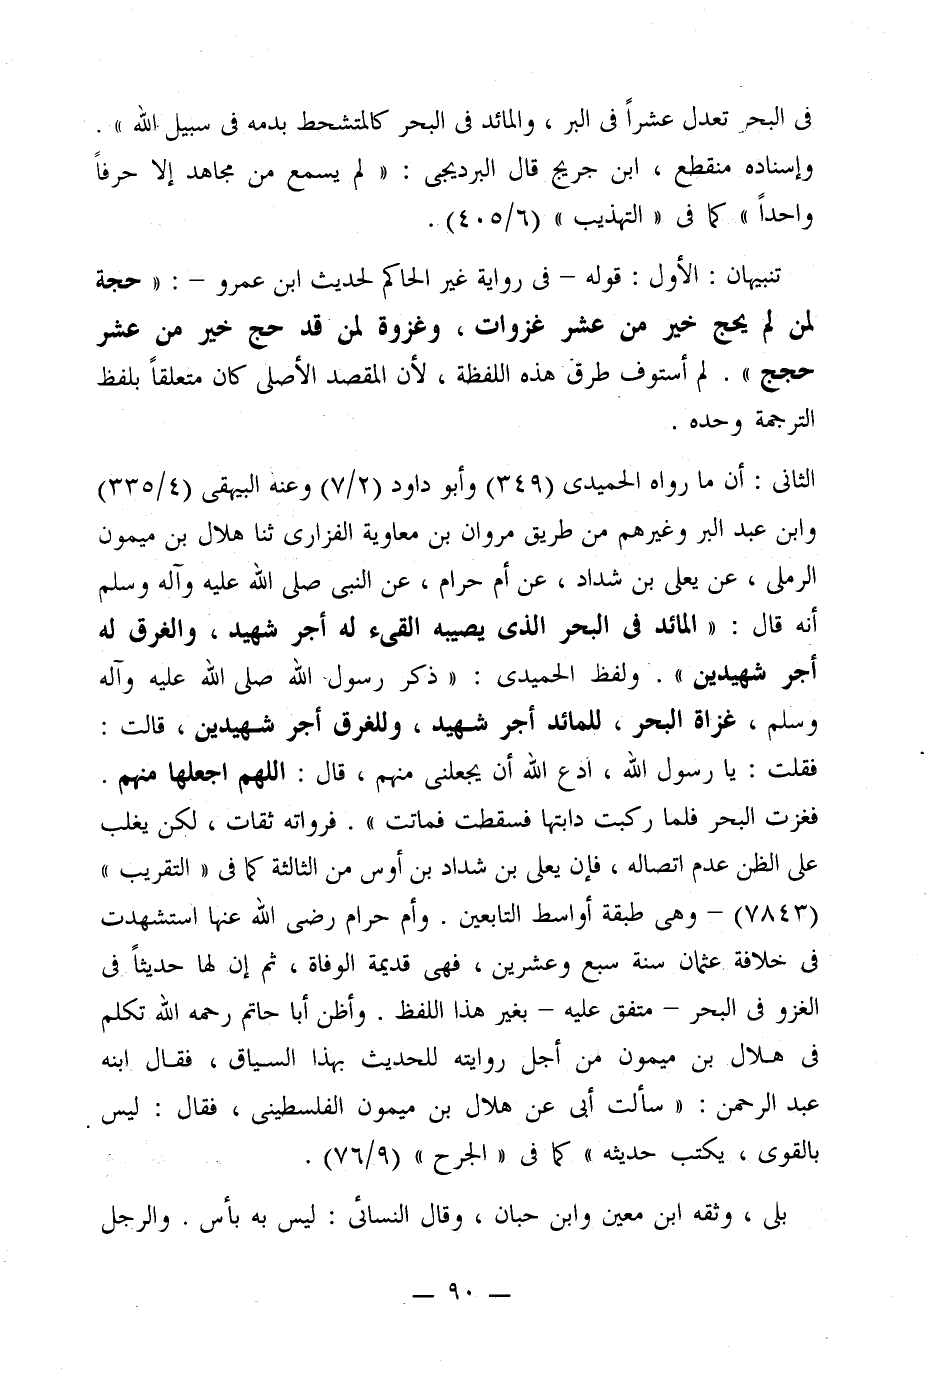 فى البحر تعدل عشراً فى البر ، والمائد فى البحر كالمتشحط بدمه فى سبيل الله » .
وإسناده منقطع ، ابن جريج قال البرديجى : « لم يسمع من مجاهد إلا حرفاً
واحداً » كما فى « التهذيب » (٤٠٥/٦) .
تنبيهان : الأول : قوله – فى رواية غير الحاكم لحديث ابن عمرو – : « حجة
لمن لم يحج خير من عشر غزوات ، وغزوة لمن قد حج خير من عشر
حجج » . لم أستوف طرق هذه اللفظة ، لأن المقصد الأصلى كان متعلقاً بلفظ
الترجمة وحده .
الثانى : أن ما رواه الحميدى (٣٤٩) وأبو داود (٧/٢) وعنه البيهقى (٣٣٥/٤)
وابن عبد البر وغيرهم من طريق مروان بن معاوية الفزارى ثنا هلال بن ميمون
الرملى ، عن يعلى بن شداد ، عن أم حرام ، عن النبى صلى الله عليه وآله وسلم
أنه قال : « المائد فى البحر الذى يصيبه القىء له أجر شهيد ، والغرق له
أجر شهيدين » . ولفظ الحميدى : « ذكر رسول الله صلى الله عليه وآله
وسلم ، غزاة البحر ، للمائد أجر شهيد ، وللغرق أجر شهيدين ، قالت :
فقلت : يا رسول الله ، ادع الله أن يجعلنى منهم ، قال : اللهم اجعلها منهم .
فغزت البحر فلما ركبت دابتها فسقطت فماتت » . فرواته ثقات ، لكن يغلب
على الظن عدم اتصاله ، فإن يعلى بن شداد بن أوس من الثالثة كما فى « التقريب »
(٧٨٤٣) – وهى طبقة أواسط التابعين . وأم حرام رضى الله عنها استشهدت
فى خلافة عثمان سنة سبع وعشرين ، فهى قديمة الوفاة ، ثم إن لها حديثاً فى
الغزو فى البحر – متفق عليه – بغير هذا اللفظ . وأظن أبا حاتم رحمه الله تكلم
فى هلال بن ميمون من أجل روايته للحديث بهذا السياق ، فقال ابنه
عبد الرحمن : « سألت أبى عن هلال بن ميمون الفلسطينى ، فقال : ليس
بالقوى ، يكتب حديثه » كما فى « الجرح » (٧٦/٩) .
بلى ، وثقه ابن معين وابن حبان ، وقال النسائى : ليس به بأس . والرجل
— ٩٠ —